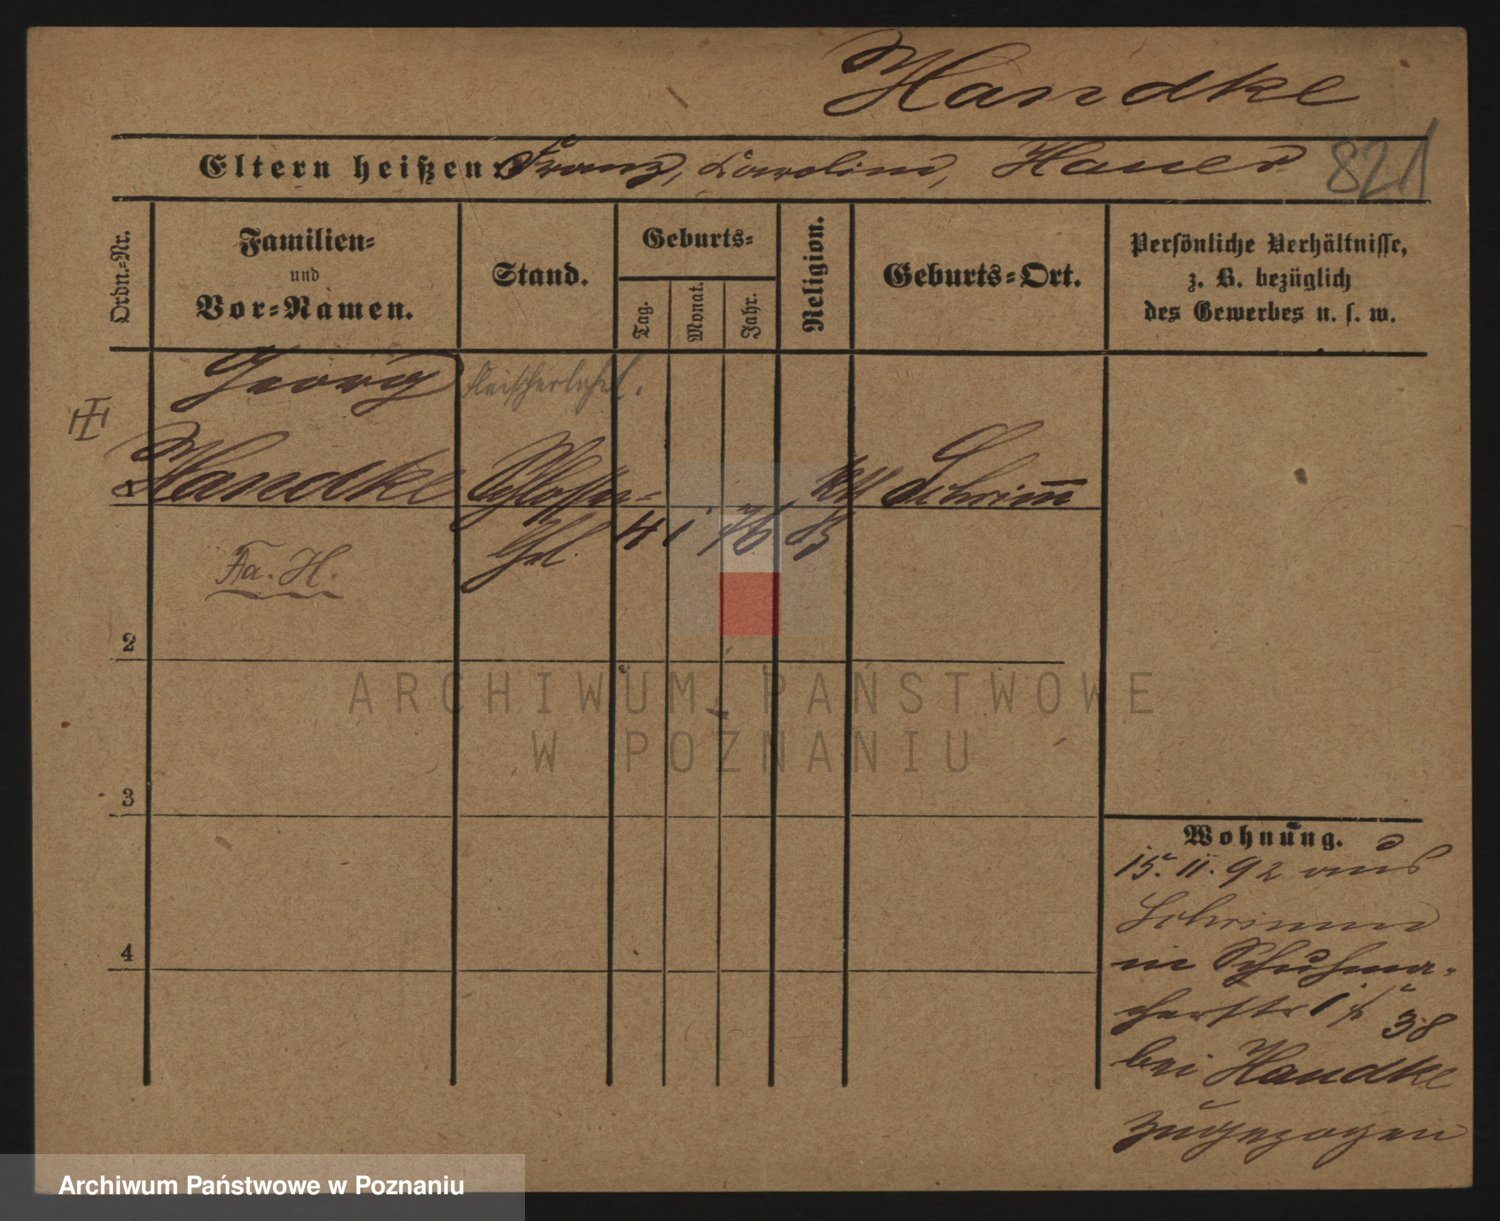 Handke
Eltern heißen: Franz, Carolina, Hauer 821
Ordn.-Nr.
Familien-
und
Vor-Namen.
Stand.
Geburts-
Tag.
Monat.
Jahr.
Religion.
Geburts-Ort.
Persönliche Verhältnisse,
z. B. bezüglich
des Gewerbes u. s. w.
Georg
1 Handke Schlosser- Schrimm
Gsl. 4 1 76
Fa. H.
2
3
4
Wohnung.
15. 11. 92 aus
Schrimm
in Schuhma-
cherstr 1
38
bei Handke
zugezogen
ARCHIWUM PAŃSTWOWE
W POZNANIU
Archiwum Państwowe w Poznaniu